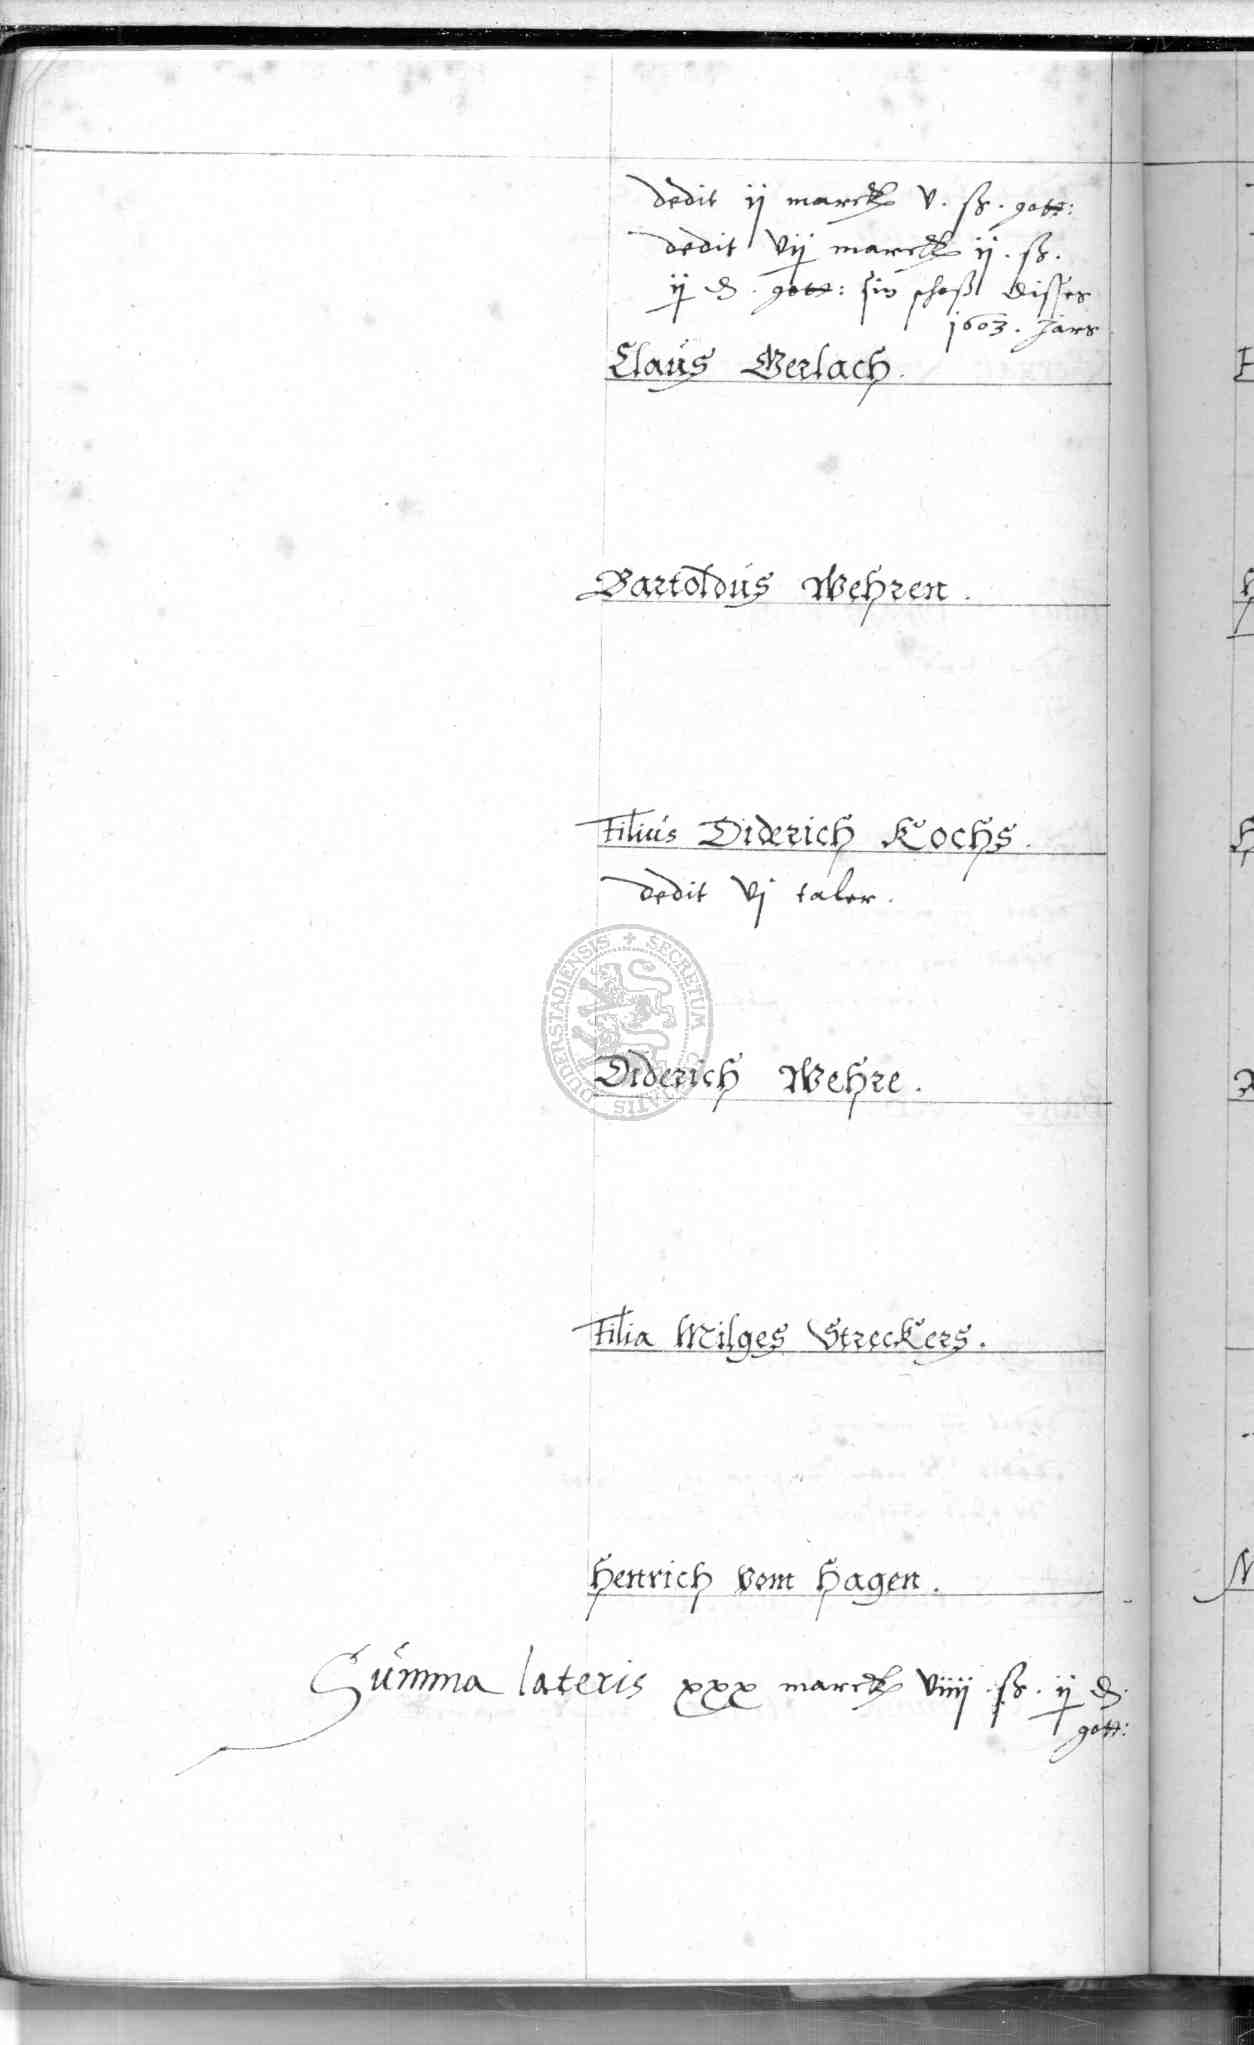 dedit ij marck v. ß. gott:
dedit vij marck ij. ß.
ij d. gott: sin schoß disses
1603. Jars
Claus Gerlach.
Bartoldus Wehren.
Filius Diderich Kochs.
dedit vj taler.
SECRETUM CIVITATIS DUDERSTADIENSIS
Diderich Wehre.
Filia Milges Streckers.
Henrich vom Hagen.
Summa lateris xxx marck viiij. ß. ij d.
gott: